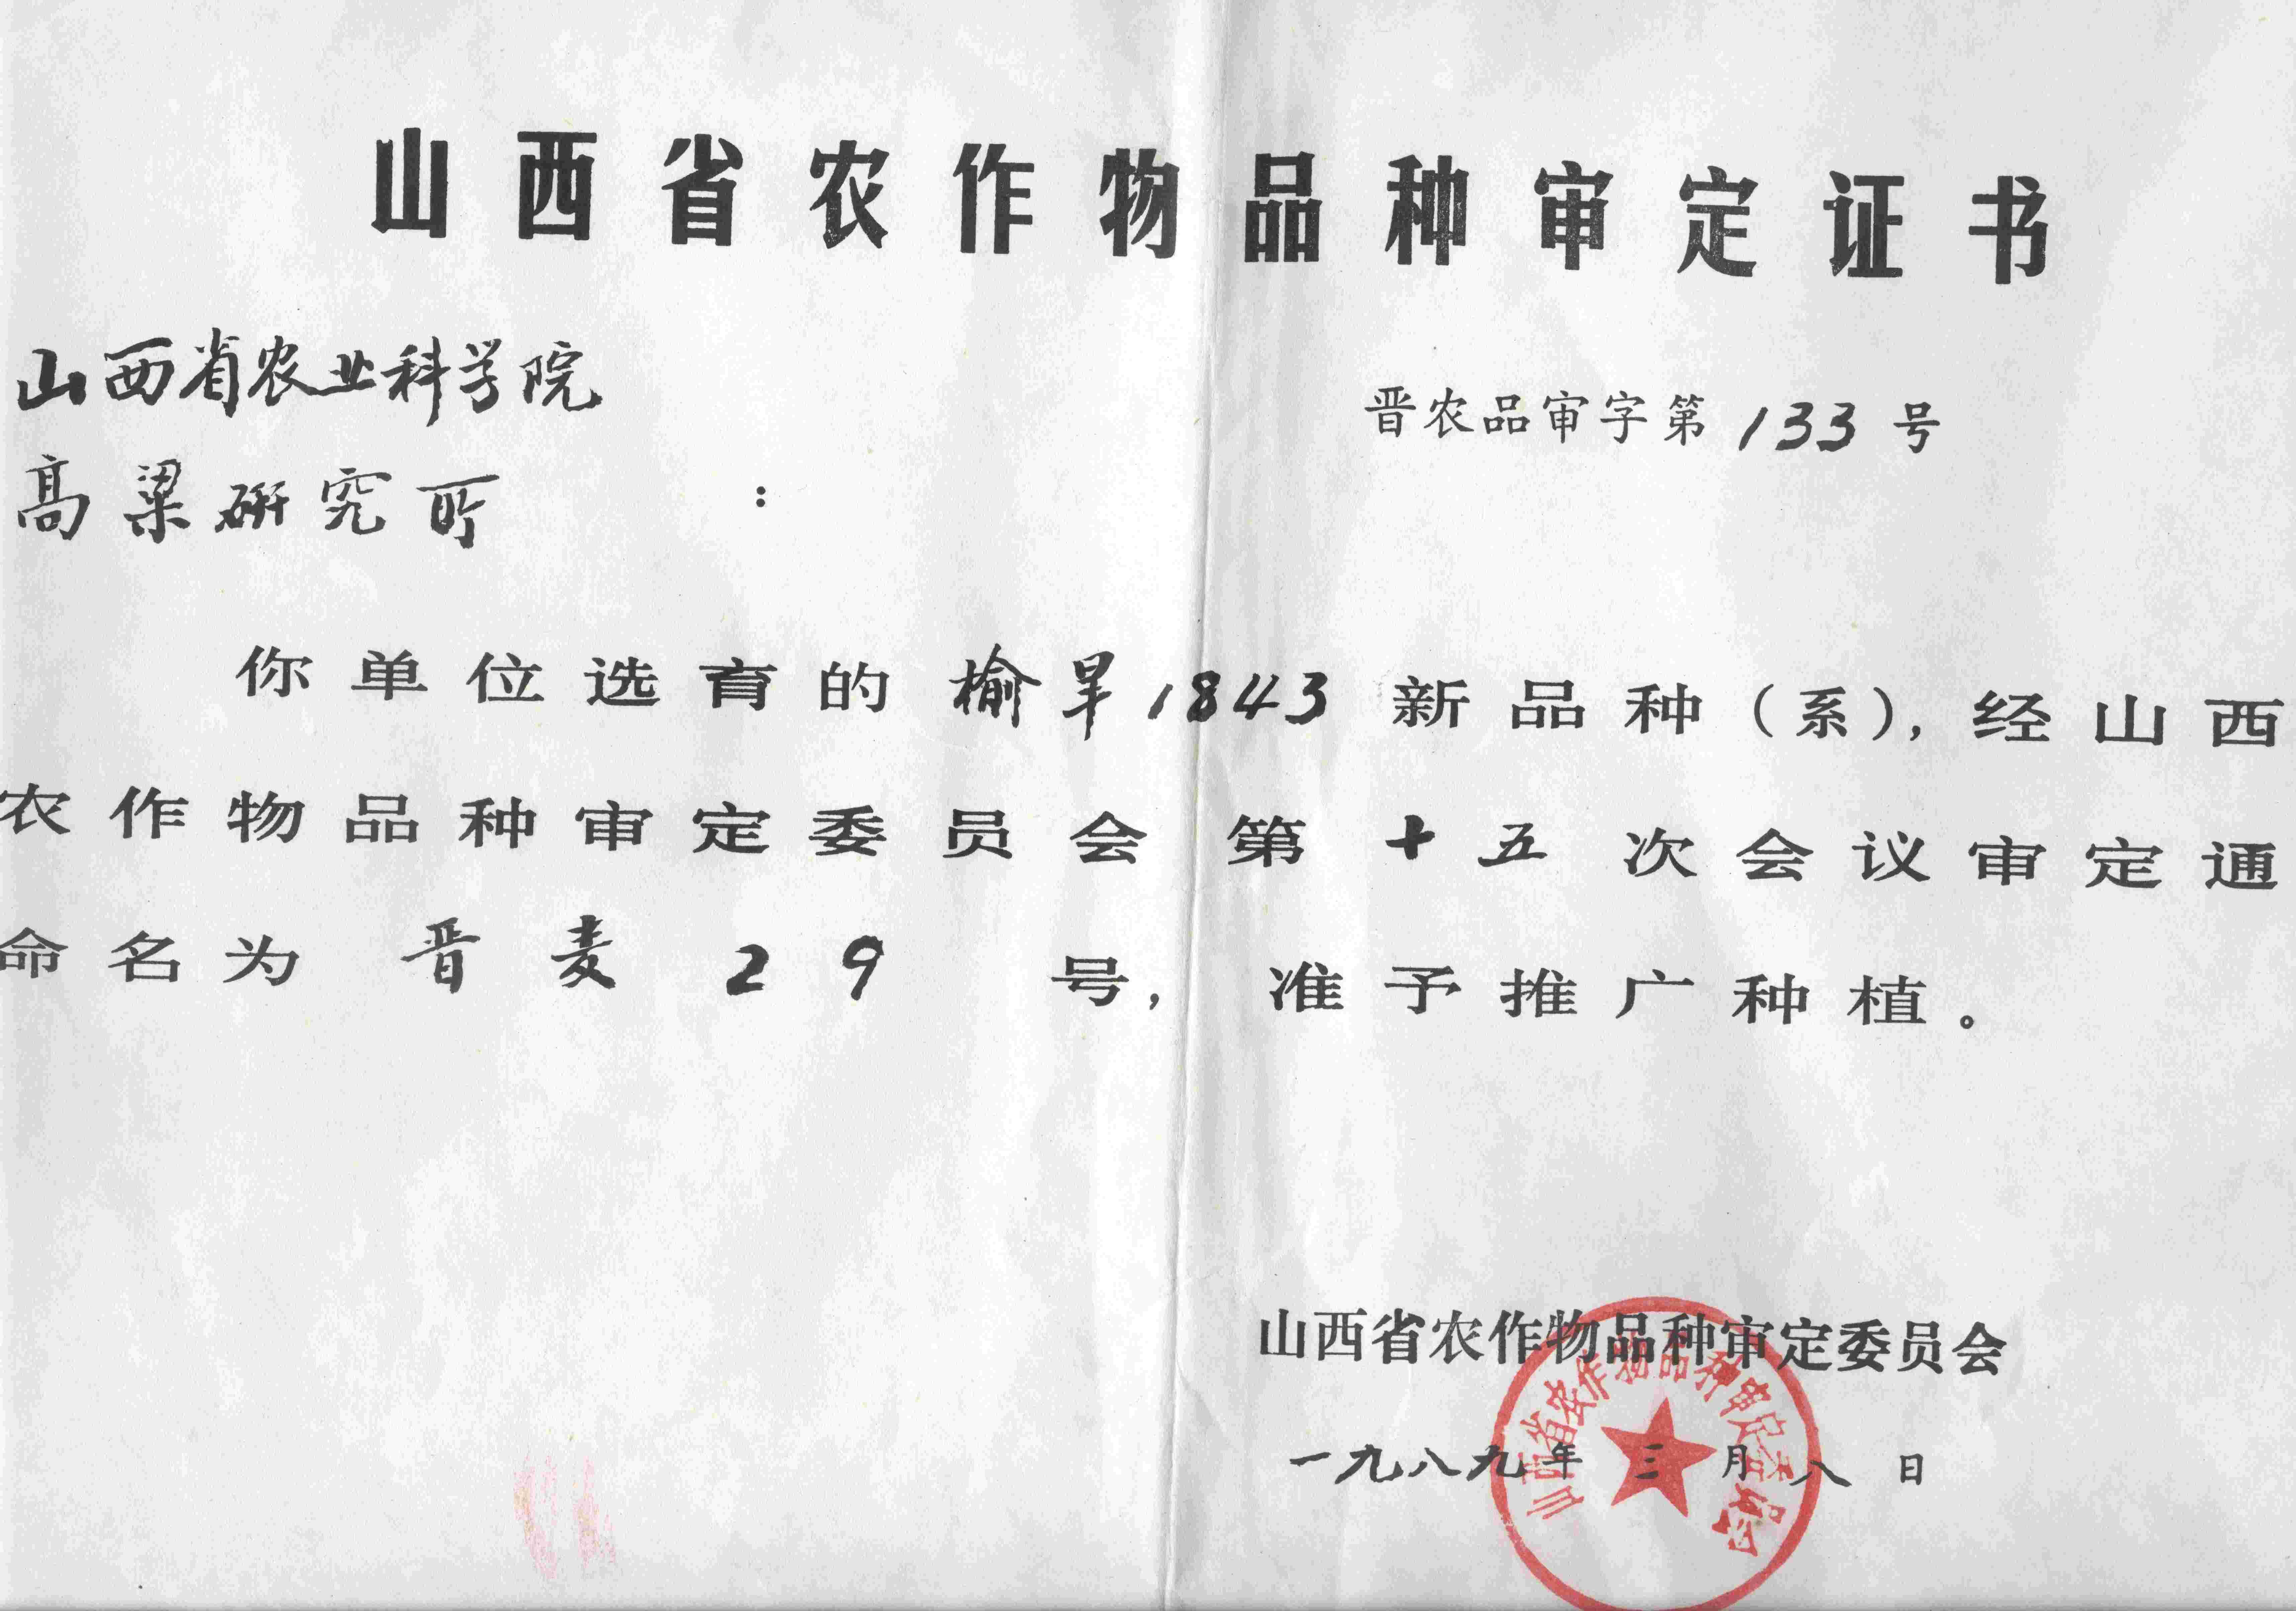 山西省农作物品种审定证书
山西省农业科学院
晋农品审字第133号
高粱研究所：
你单位选育的榆旱1843新品种（系），经山西
农作物品种审定委员会第十五次会议审定通
命名为晋麦29号，准予推广种植。
山西省农作物品种审定委员会
一九八九年三月八日
山西省农作物品种审定委员会